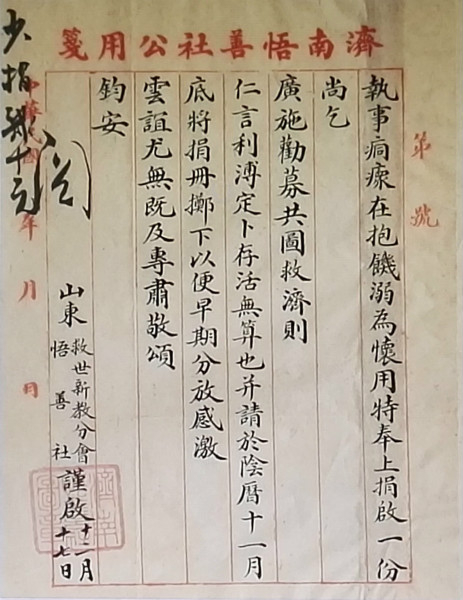 濟南悟善社公用箋
第 號
執事痌瘝在抱饑溺為懷用特奉上捐啟一份
尚乞
廣施勸募共圖救濟則
仁言利溥定卜存活無算也并請於陰曆十一月
底將捐冊擲下以便早期分放感激
雲誼尤無既及專肅敬頌
鈞安
山東救世新教分會
悟善社
謹啟
十二月
十七日
中華民國 年 月 日